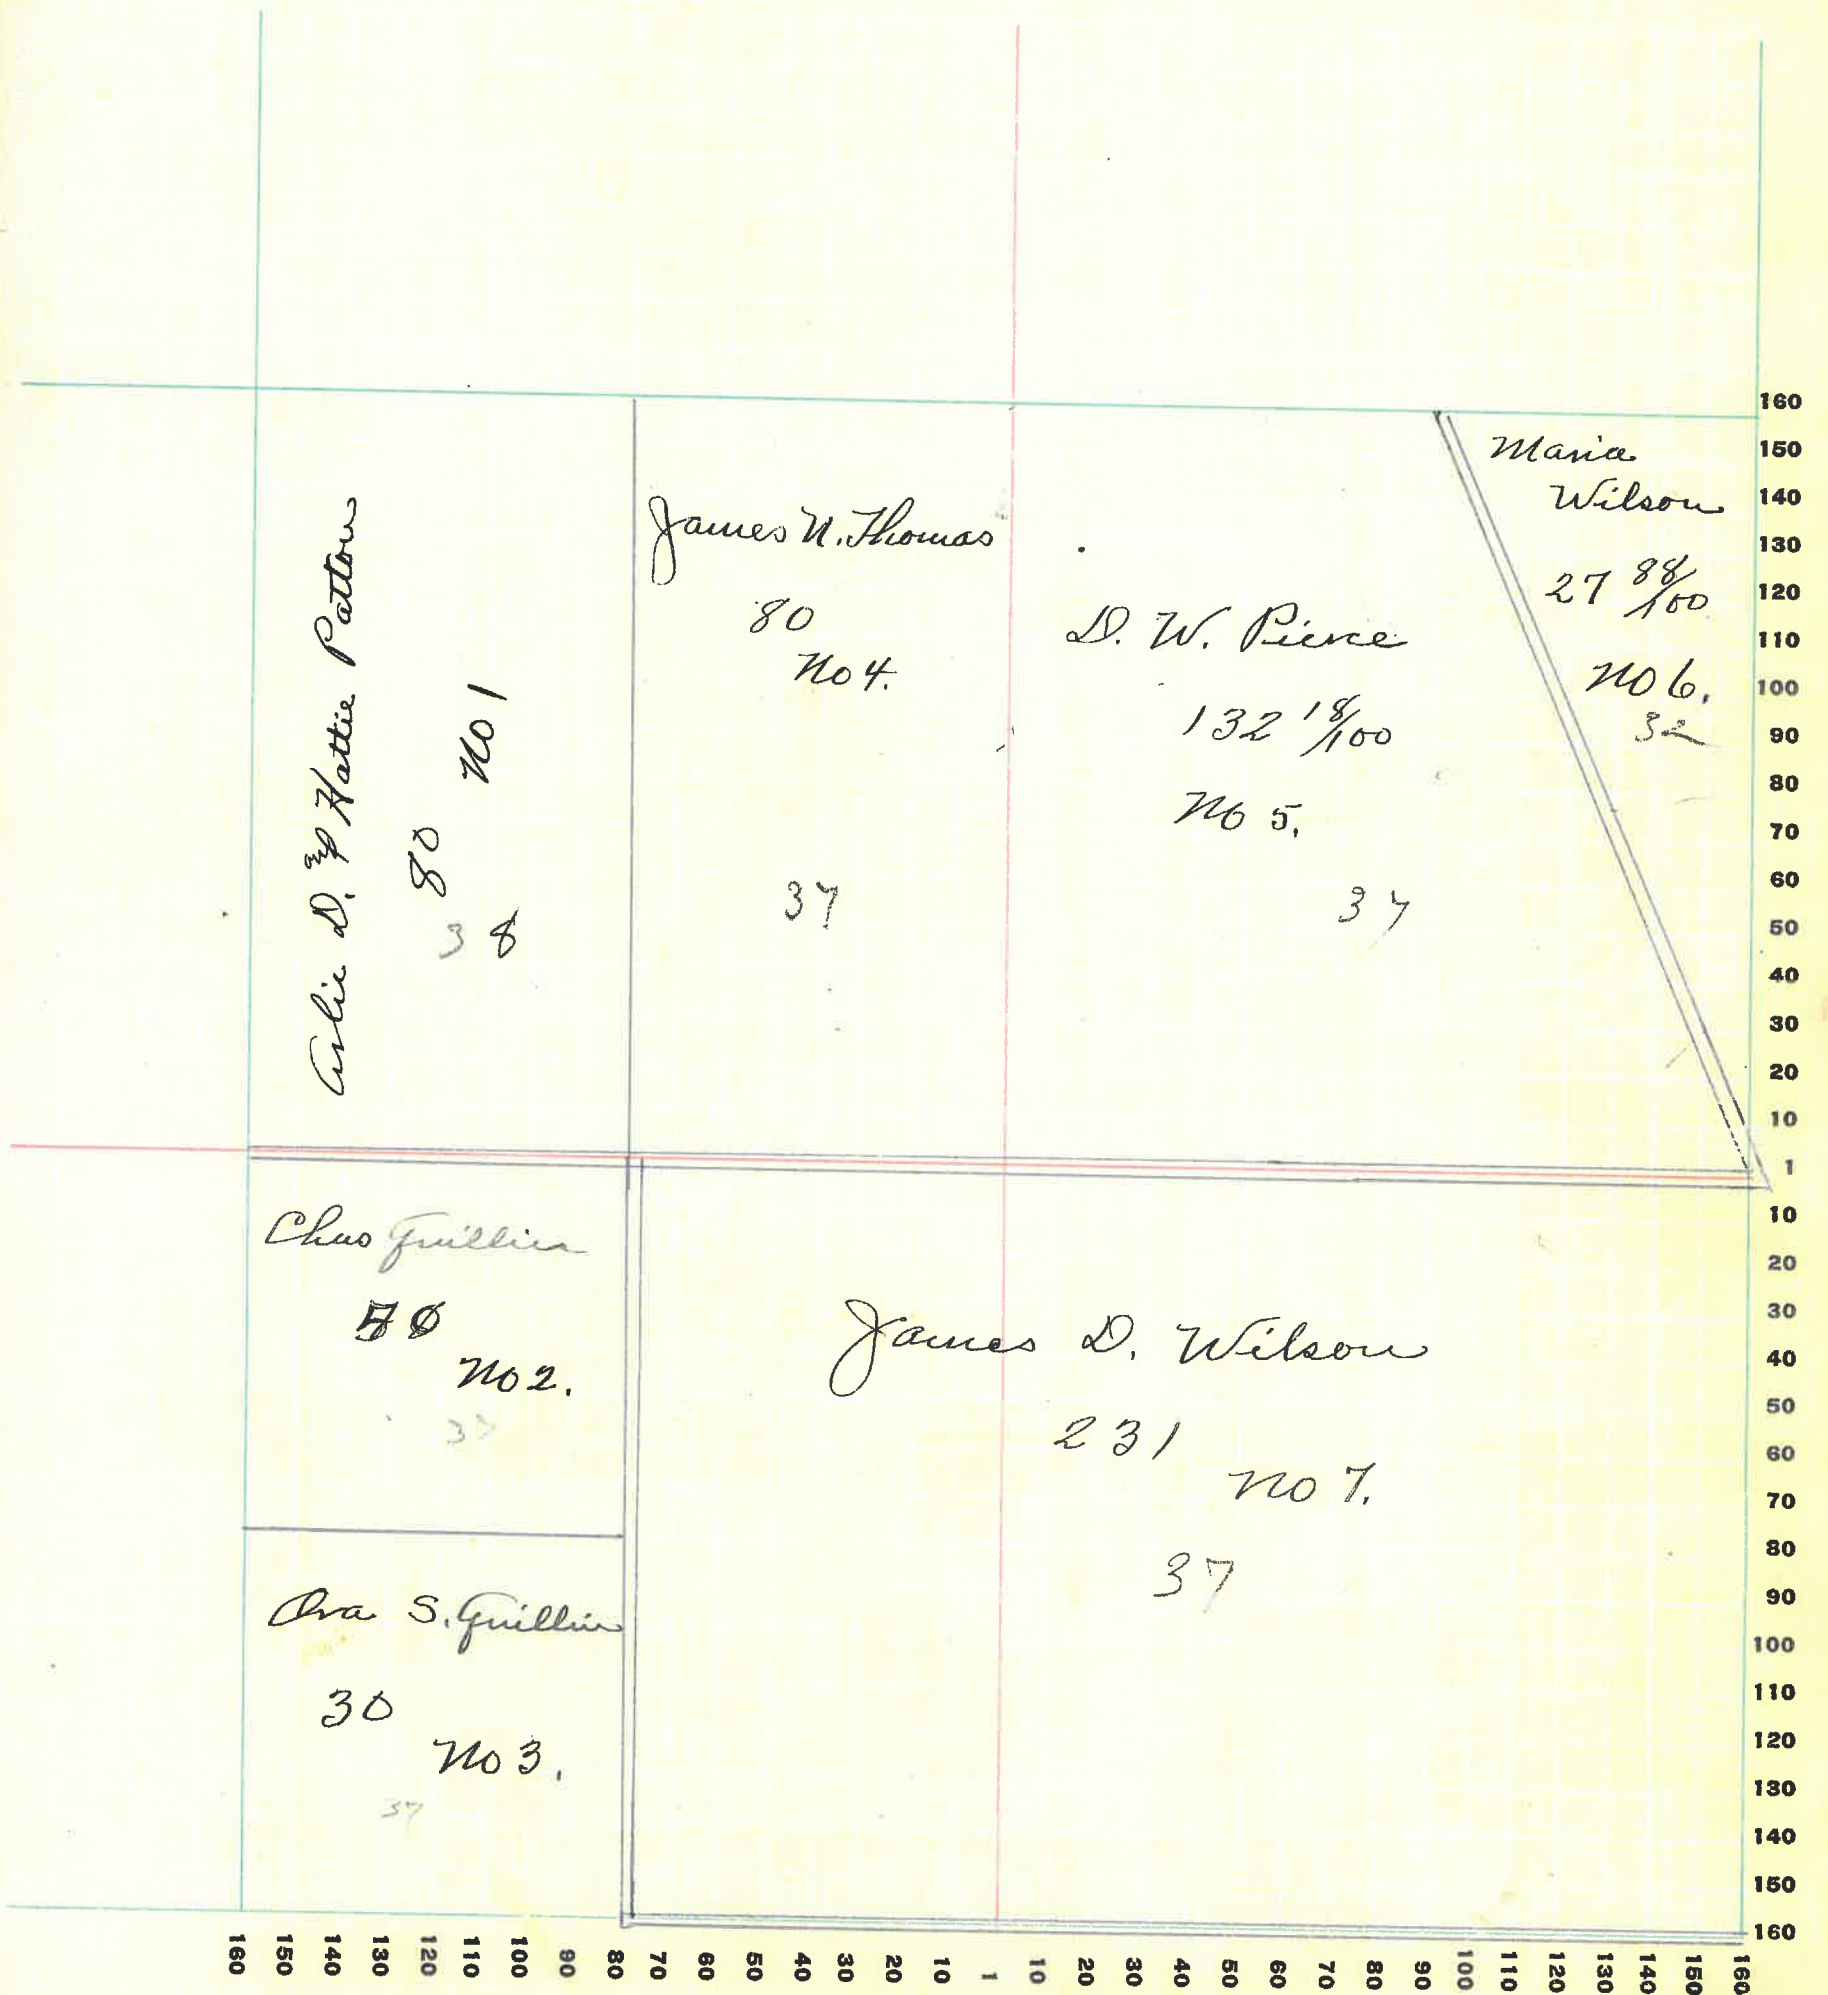 Arlie D. & Hattie Patton
80 No 1
38
James N. Thomas
80
No 4.
37
D. W. Pierce
132 18/100
No 5.
37
Maria
Wilson
27 88/100
No 6.
32
Chas Guillin
No 2.
37
Ora S. Guillin
30
No 3.
37
James D. Wilson
231
No 7.
37
160
150
140
130
120
110
100
90
80
70
60
50
40
30
20
10
1
10
20
30
40
50
60
70
80
90
100
110
120
130
140
150
160
160 150 140 130 120 110 100 90 80 70 60 50 40 30 20 10 1 10 20 30 40 50 60 70 80 90 100 110 120 130 140 150 160